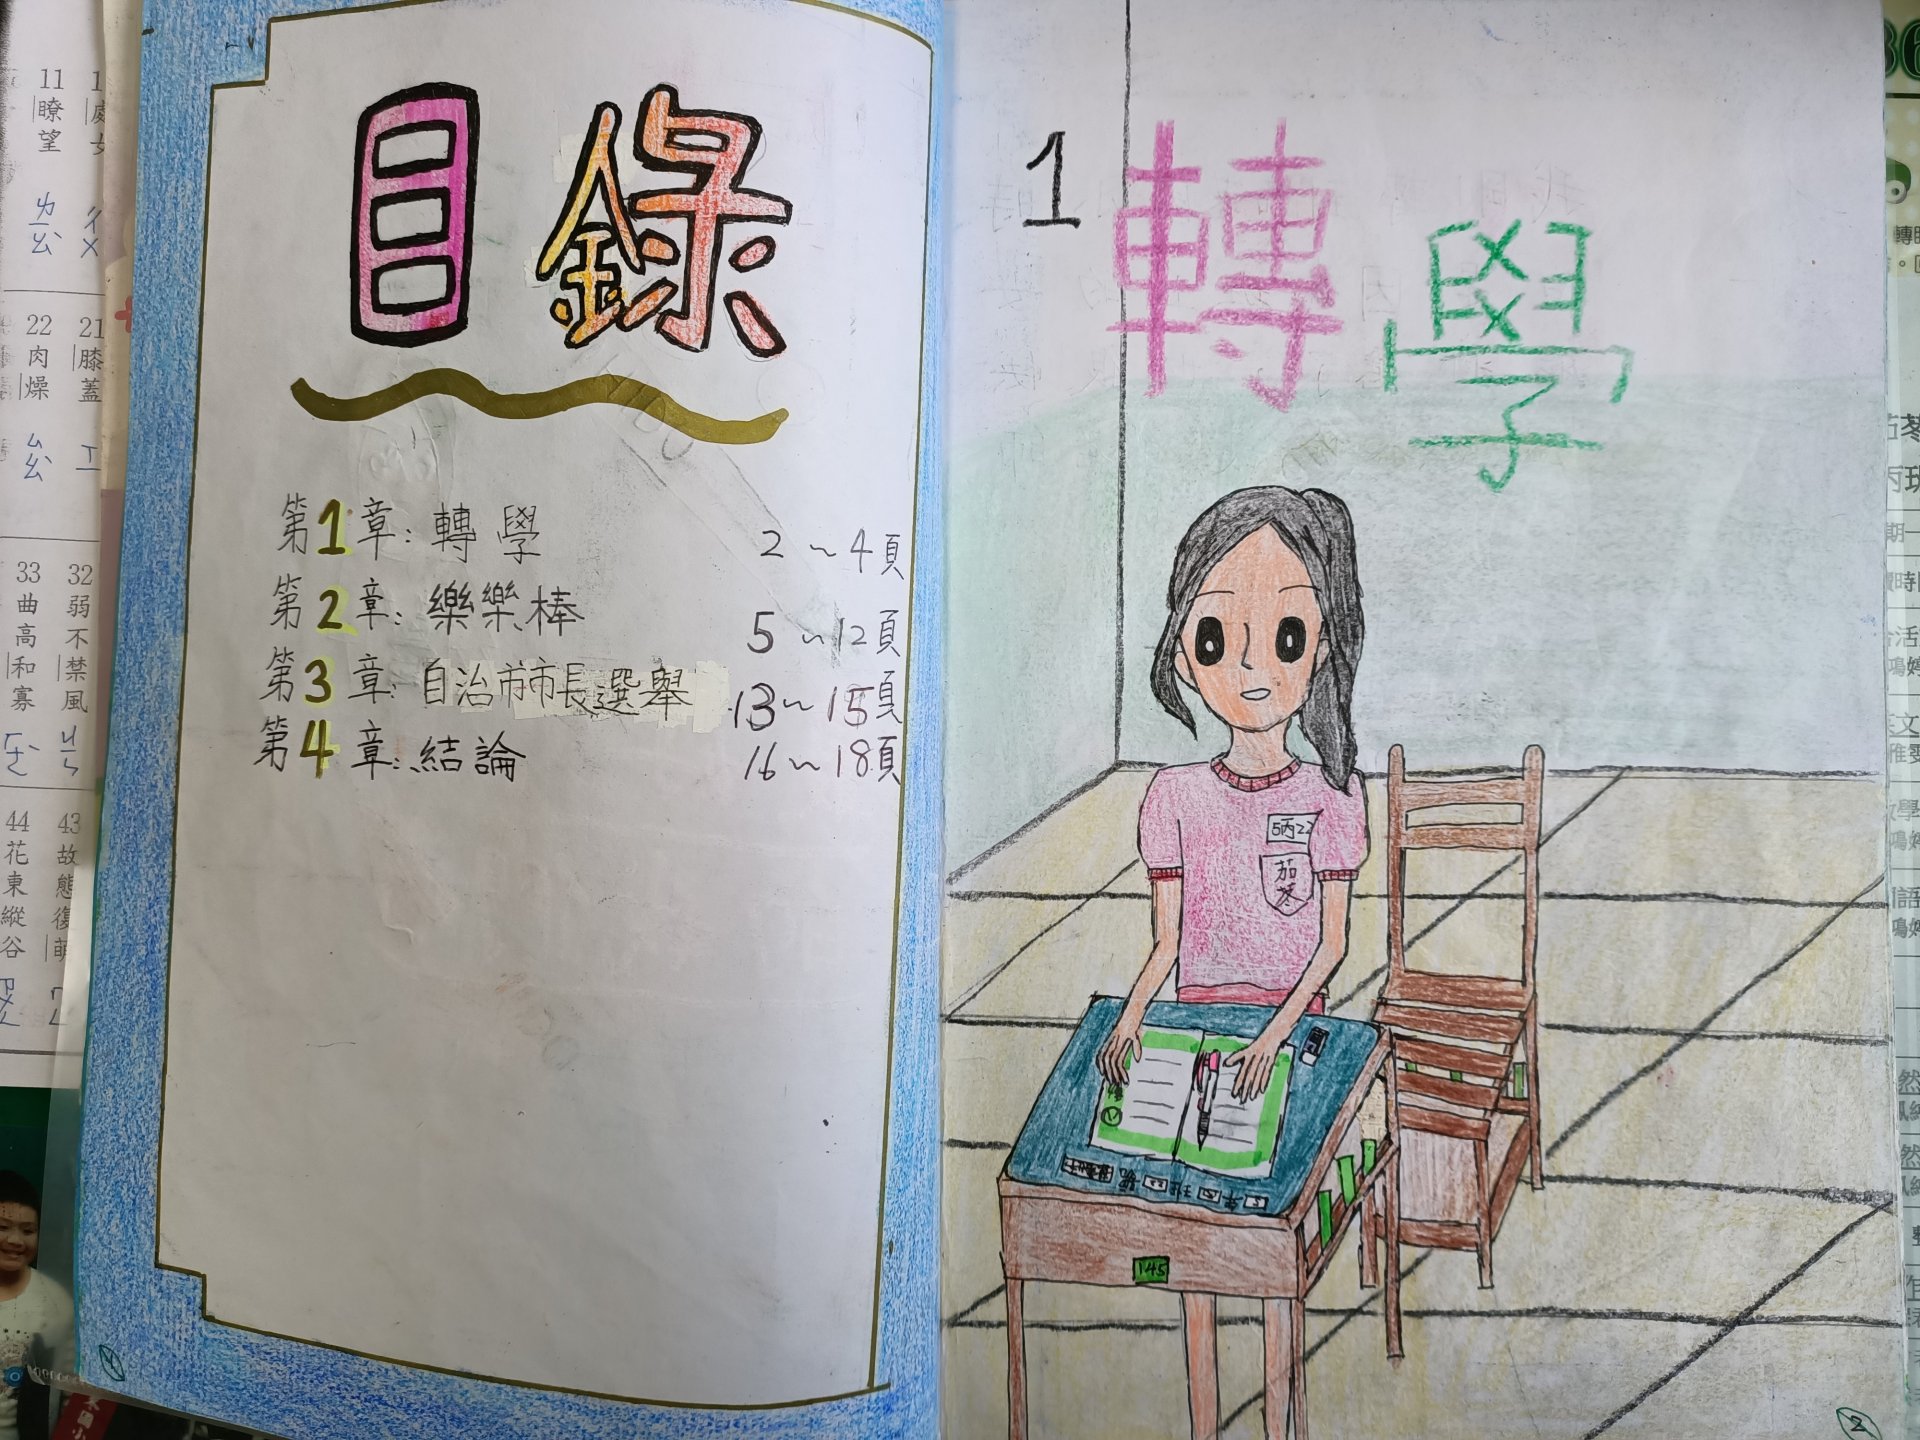 目錄
第1章:轉學 2~4頁
第2章:樂樂棒 5~12頁
第3章:自治市市長選舉 13~15頁
第4章:結論 16~18頁
1
轉學
5丙22
茄苳
145
2
11 瞭望
ㄌㄧㄠˊ
22 肉燥
ㄙㄠˋ
21 膝蓋
ㄒㄧ
33 曲高和寡
ㄏㄜˋ
32 弱不禁風
ㄐㄧㄣ
44 花東縱谷
43 故態復萌